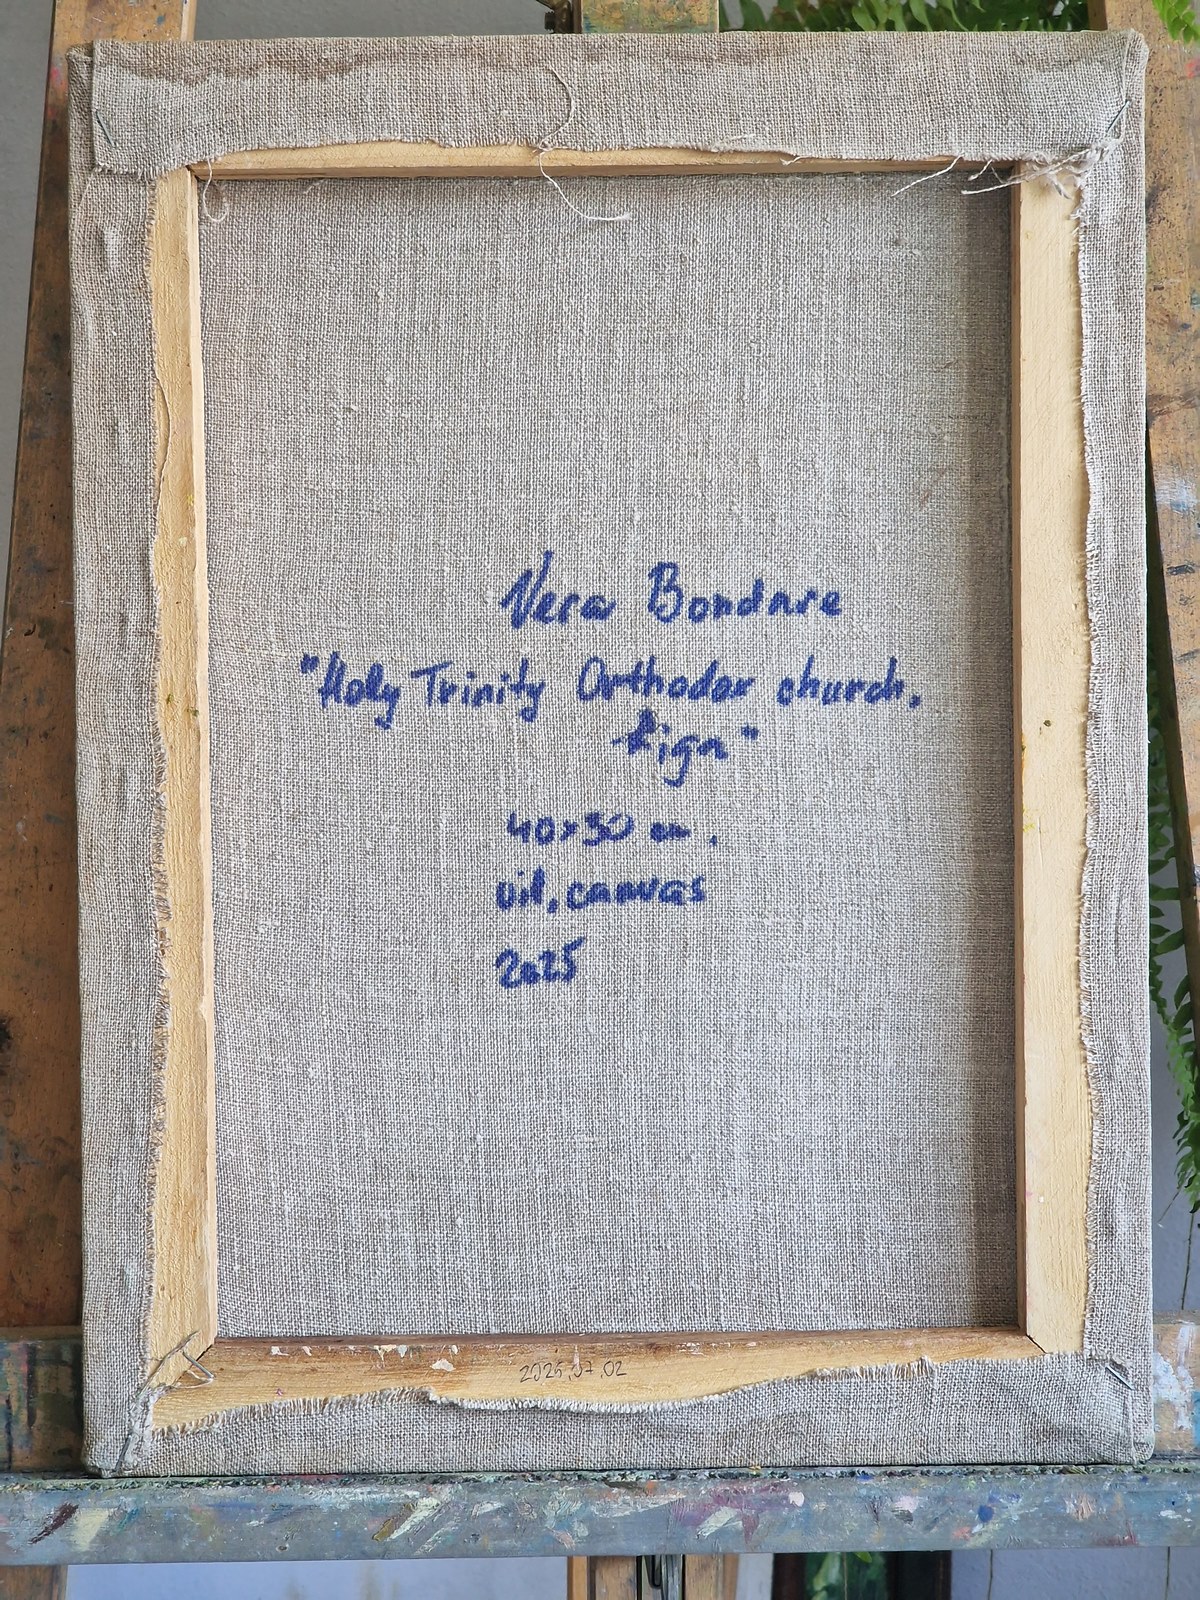 Vera Bondare
"Holy Trinity Orthodox church,
Riga"
40x30 cm.
oil, canvas
2025
2025.07.02